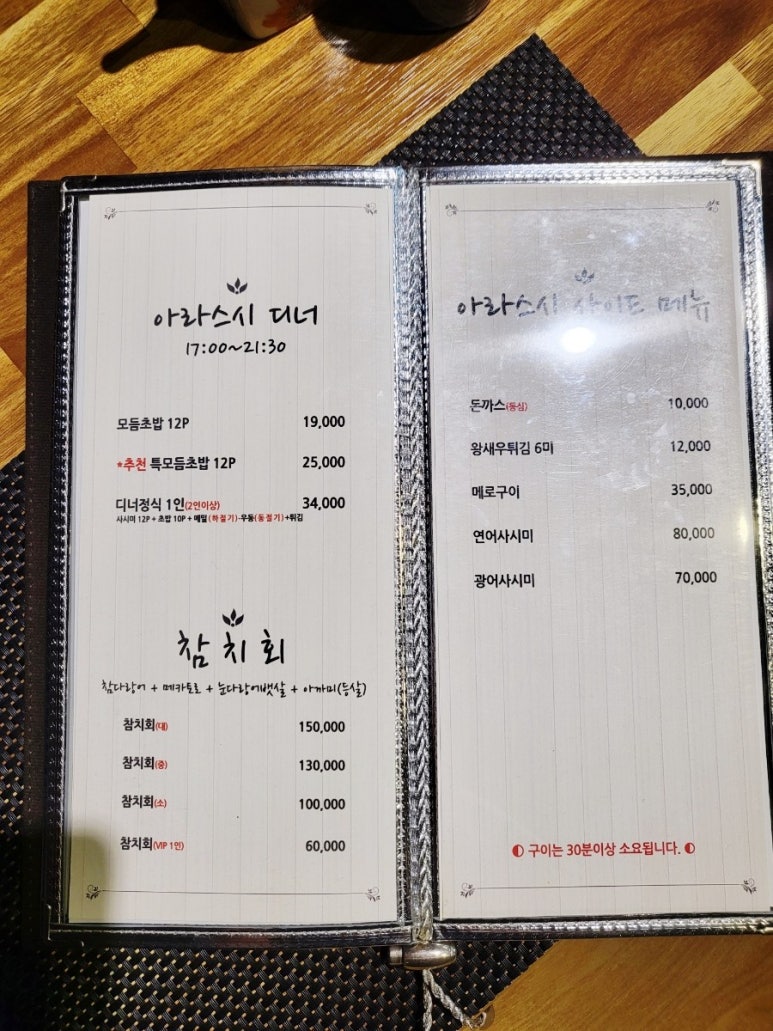 아라스시 디너
17:00~21:30
모듬초밥 12P 19,000
*추천 특모듬초밥 12P 25,000
디너정식 1인(2인이상) 34,000
사시미 12P + 초밥 10P + 메밀(하절기)·우동(동절기)+튀김
참치회
참다랑어 + 메카토로 + 눈다랑어뱃살 + 아까미(등살)
참치회(대) 150,000
참치회(중) 130,000
참치회(소) 100,000
참치회(VIP 1인) 60,000
아라스시 사이드 메뉴
돈까스(등심) 10,000
왕새우튀김 6마 12,000
메로구이 35,000
연어사시미 80,000
광어사시미 70,000
구이는 30분이상 소요됩니다.